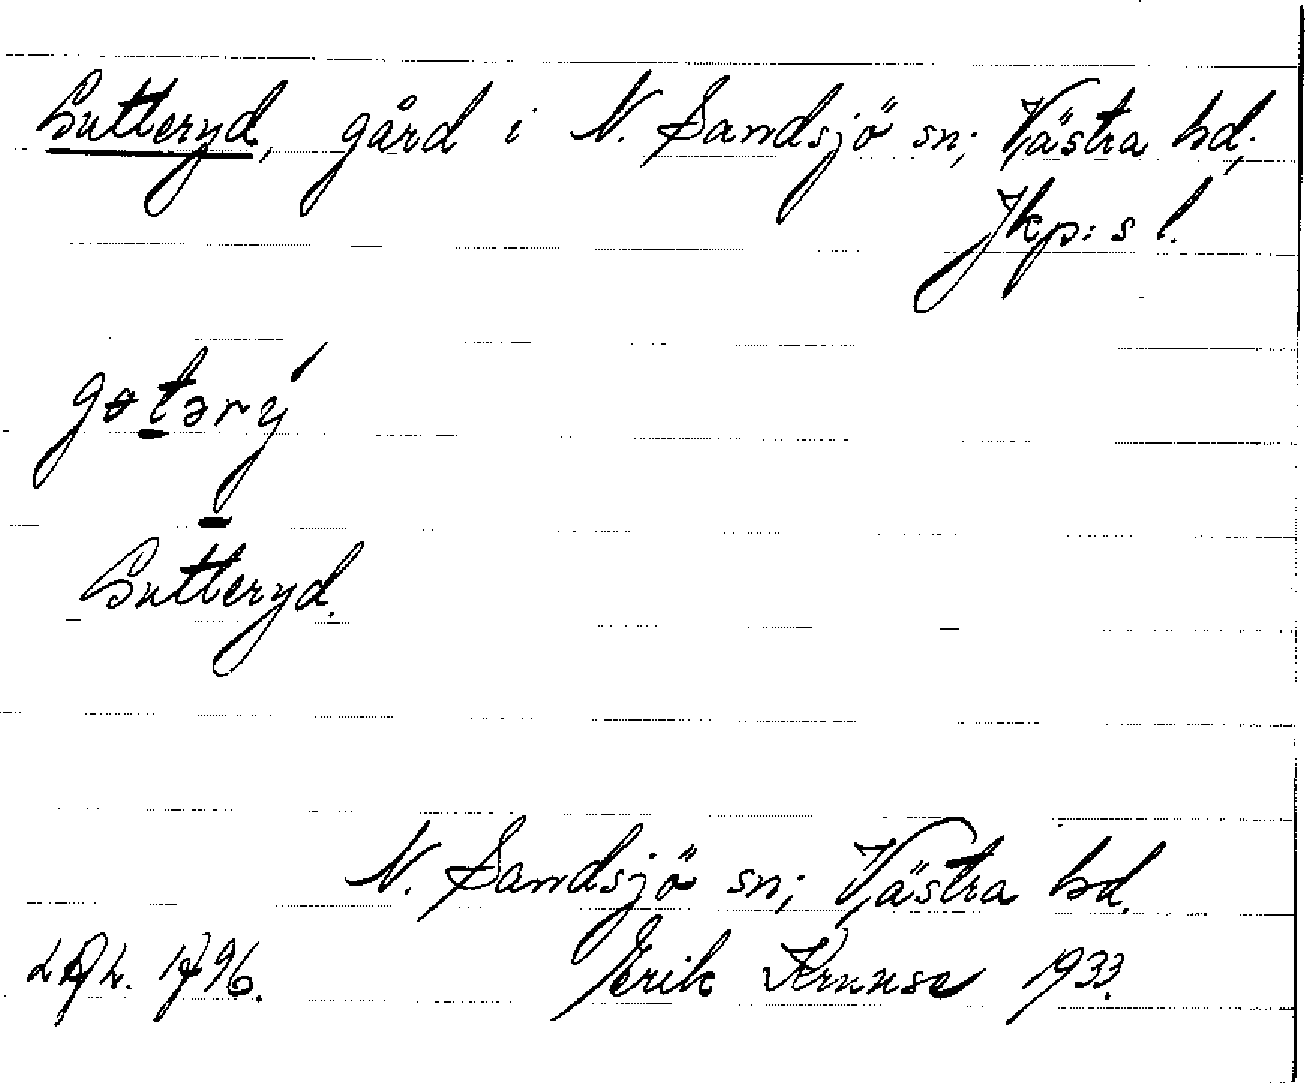 Gutteryd, gård i N. Sandsjö sn; Västra hd;
Jkp:s l.
gɵtərý
Gutteryd.
N. Sandsjö sn; Västra hd.
1796.
Erik Kruuse 1933.